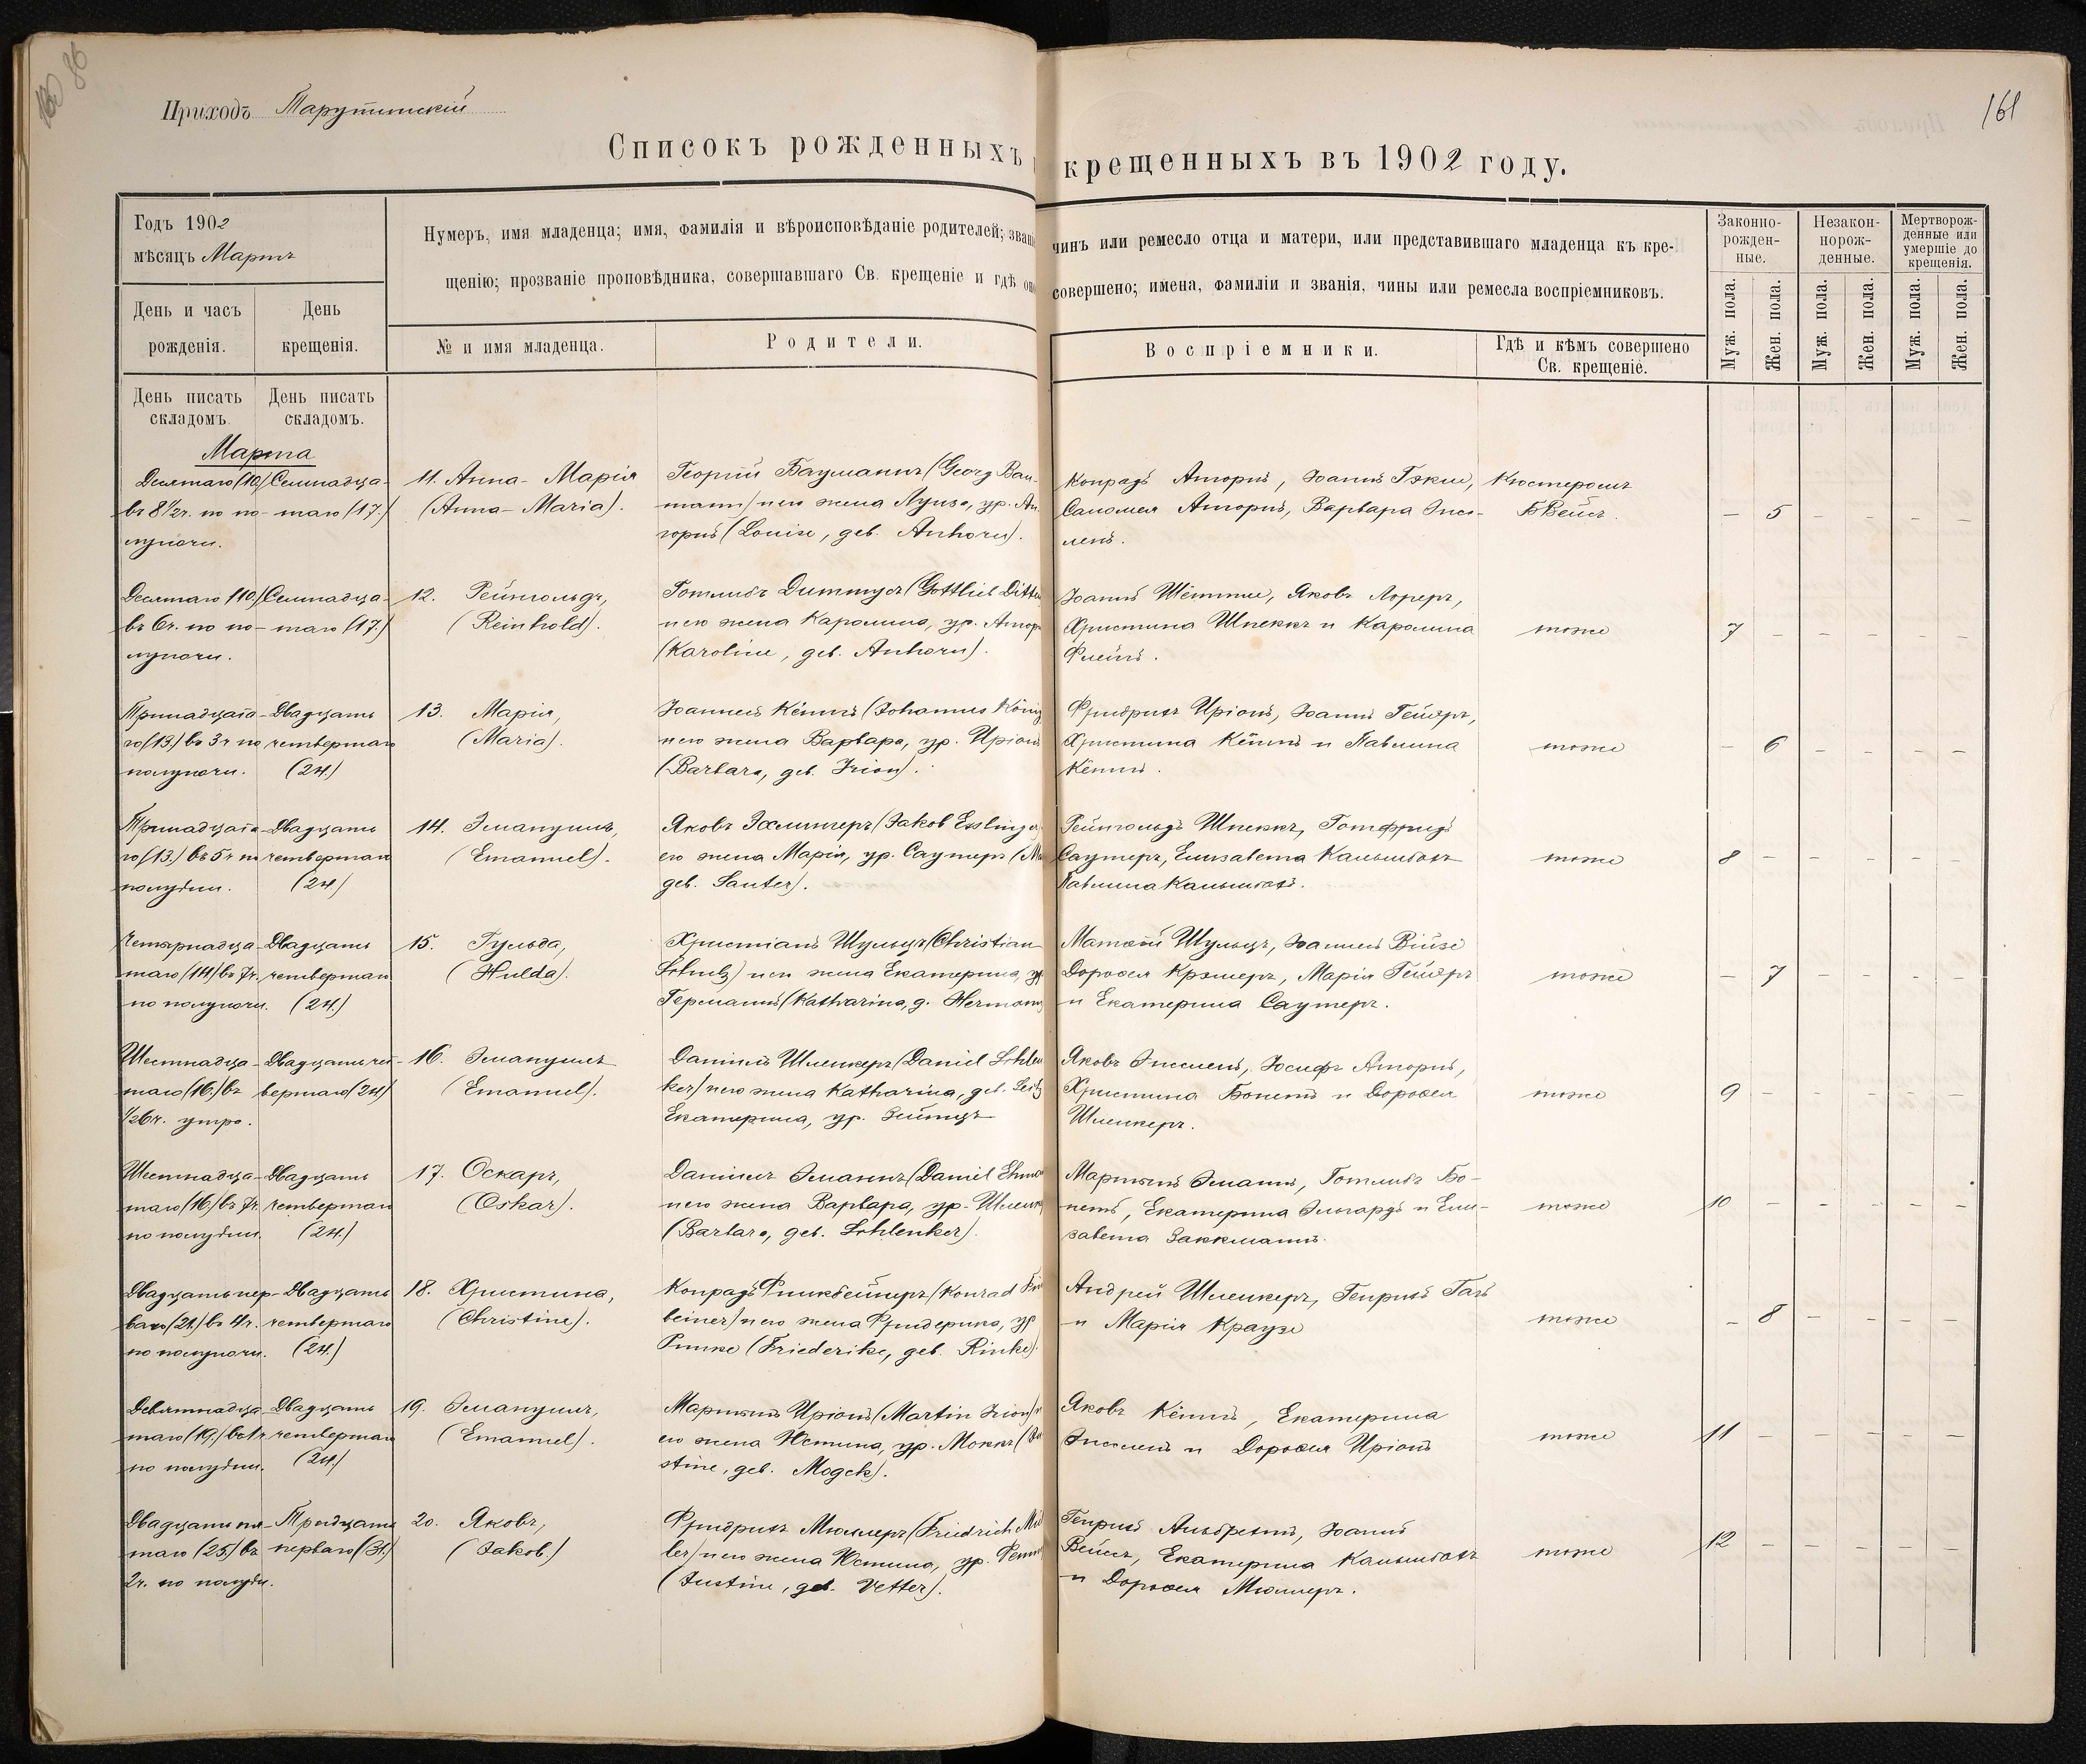 86
161
Приходъ Тарутинскій
Списокъ рожденныхъ крещенныхъ въ 1902 году.
Годъ 1902
мѣсяцъ Мартъ
День и часъ рожденія.
День крещенія.
Нумеръ, имя младенца; имя, фамилія и вѣроисповѣданіе родителей; зван чинъ или ремесло отца и матери, или представившаго младенца къ кре-
щенію; прозваніе проповѣдника, совершавшаго Св. крещеніе и гдѣ он совершено; имена, фамиліи и званія, чины или ремесла воспріемниковъ.
№ и имя младенца.
Родители.
Воспріемники.
Гдѣ и кѣмъ совершено
Св. крещеніе.
Законно-
рожден-
ные.
Незакон-
норож-
денные.
Мертворож-
денные или
умершіе до
крещенія.
Муж. пола.
Жен. пола.
Муж. пола.
Жен. пола.
Муж. пола.
Жен. пола.
День писать
складомъ.
День писать
складомъ.
Марта
Десятаго (10)
въ 8 1/2 ч. по по-
луночи.
Семнадца-
таго (17.)
11. Анна-Марія
(Anna-Maria).
Георгій Бауманнъ (Georg Bau-
mann) и его жена Луиза, ур. Ан
горнъ (Louise, geb. Anhorn).
Конрадъ Аторнъ, Іоаннъ Гэкле,
Саломея Аторнъ, Варвара Энс-
ленъ.
Кюстеромъ
Б Вейсъ.
— 5 — — — —
Десятаго (10.)
въ 6 ч. по по-
луночи.
Семнадца-
таго (17.)
12. Рейнгольдъ,
(Reinhold).
Готлибъ Диттусъ (Gottlieb Dittu
и его жена Каролина, ур. Атор
(Karoline, geb. Anhorn).
Іоаннъ Шёттле, Яковъ Лореръ,
Христина Шпеккъ и Каролина
Флейнъ.
тоже
7 — — — — —
Тринадцата-
го (13.) въ 3 ч по
полуночи.
Двадцать
четвертаго
(24.)
13. Марія,
(Maria).
Іоаннесъ Кёнигъ (Johannes König
и его жена Варвара, ур. Иріонъ
(Barbara, geb. Irion).
Фридрихъ Иріонъ, Іоаннъ Гейеръ,
Христина Кёнигъ и Павлина
Кёнигъ.
тоже
— 6 — — — —
Тринадцата-
го (13.) въ 5 ч по
полудни.
Двадцать
четвертаго
(24)
14. Эмануилъ,
(Emanuel).
Яковъ Эслингеръ (Jakob Esslinger
его жена Марія, ур. Саутеръ (Ma
geb. Sauter).
Рейнгольдъ Шпеккъ, Готфридъ
Саутеръ, Елизавета Кальмбахъ
Павлина Кальмбахъ.
тоже
8 — — — — —
Четырнадца-
таго (14) въ 7 ч.
по полуночи.
Двадцать
четвертаго
(24.)
15. Гульда,
(Hulda).
Христіанъ Шульцъ (Christian
Schulz) и его жена Екатерина, ур
Германнъ (Katharina, g. Hermann
Матвій Шульцъ,
Доровея Крэмеръ, Марія Гейеръ
и Екатерина Саутеръ.
тоже
— 7 — — — —
Шестнадца-
таго (16.) въ
1/2 6 ч. утра.
Двадцать чет-
вертаго (24)
16. Эмануилъ
(Emanuel).
Даніилъ Шленкеръ (Daniel Schlen
ker) и его жена Katharina, geb. Seitz
Екатерина, ур. Зейтцъ
Яковъ Энсленъ, Іосифъ Аторнъ,
Христина Бонетъ и Доровея
Шленкеръ.
тоже
9 — — — — —
Шестнадца-
таго (16.) въ 7 ч.
по полудни.
Двадцать
четвертаго
(24.)
17. Оскаръ,
(Oskar).
Даніилъ Эманнъ (Daniel Ehma
и его жена Варвара, ур. Шленк
(Barbara, geb. Schlenker).
Мартинъ Эманнъ, Готлибъ Бо-
нетъ, Екатерина Эльгардъ и Ели-
завета Заккманнъ.
тоже
10 — — — — —
Двадцать пер-
ваго (21.) въ 4 ч.
по полуночи.
Двадцать
четвертаго
(24.)
18. Христина,
(Christine).
Конрадъ Финкбейнеръ (Konrad Fin
beiner) и его жена Фридерика, ур
Ринке (Friederike, geb. Rinke).
Андрей Шленкеръ, Генрихъ Газъ
и Марія Краузе
тоже
— 8 — — — —
Девятнадца-
таго (19.) въ 1 ч
по полудни.
Двадцать
четвертаго
(24.)
19. Эмануилъ,
(Emanuel).
Мартинъ Иріонъ (Martin Irion) и
его жена Юстина, ур. Моккъ (Ju
stine, geb. Mogck).
Яковъ Кёнигъ, Екатерина
Энсленъ и Доровея Иріонъ
тоже
11 — — — — —
Двадцать пя-
таго (25.) въ
2 ч. по полудн.
Тридцать
перваго (31.)
20. Яковъ,
(Jakob.)
Фридрихъ Мюллеръ (Friedrich Mül
ler) и его жена Юстина, ур. Фетт
(Justine, geb. Vetter).
Генрихъ Альбрехтъ, Іоаннъ
Вейсъ, Екатерина Кальмбахъ
и Доровея Мюллеръ.
тоже
12 — — — — —